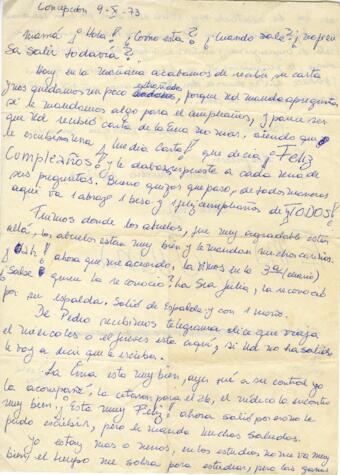 Concepción 9-X-73
Mamá ¡Hola! ¿Cómo está? ¿Cuando sale?, ¿no piensa
sa salir todavía?
Hoy en la mañana acabamos de recibir su carta
y nos quedamos un poco extrañados, porque Ud. manda a preguntar
si le mandamos algo para el cumpleaños, y parece ser
que Ud. recibió carta de la Ema no mas, siendo que
le escribimos una ¡Media Carta! que decía ¡Feliz
Cumpleaños! y le dabamos respuesta a cada una de
sus preguntas. Bueno que paso, de todas maneras
aquí va 1 abrazo 1 beso y 1 feliz cumpleaños de ¡TODOS!
Fuimos donde los abuelos, fue muy agradable estar
allá, los abuelos estan muy bien y le mandan muchos cariños.
¡Ah! ahora que me acuerdo, la vimos en la 3era (diario)
¿Sabe quien la reconoció? La Sra Julia, la reconoció
por su espalda. Salió de Espalda y con 1 moño.
De Pedro recibimos telegrama dice que viaja
el miercoles o el jueves esta aquí, si Ud no ha salido
le voy a decir que le escriba.
La Ema esta muy bien, ayer fué a su control yo
la acompañé, la citaron para el 26, el médico la encontró
muy bien. ¡Esta muy Feliz! ahora salió por eso no le
pudo escribir, pero le manda muchos saludos.
Yo estoy mas o menos, en los estudios no me va muy
bien, el tiempo me sobra para estudiar, pero las ganas